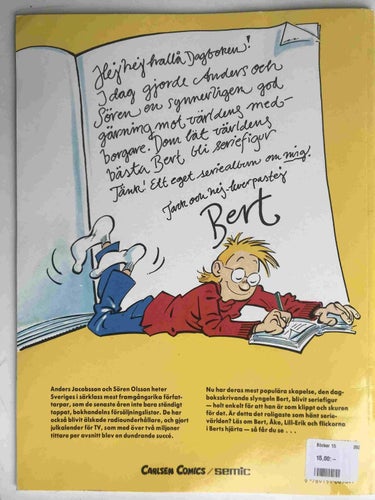 Hej hej hallå Dagboken!
I dag gjorde Anders och
Sören en synnerligen god
gärning mot världens med-
borgare. Dom lät världens
bästa Bert bli seriefigur
Tänk! Ett eget seriealbum om mig!
Tack och hej-leverpastej
Bert
Anders Jacobsson och Sören Olsson heter
Sveriges i särklass mest framgångsrika förfat-
tarpar, som de senaste åren inte bara ständigt
toppar, bokhandelns försäljningslistor. De har
också blivit älskade radiounderhållare, och gjort
julkalender för TV, som med över två miljoner
tittare per avsnitt blev en dundrande succé.
Nu har deras mest populära skapelse, den dag-
boksskrivande slyngeln Bert, blivit seriefigur
— helt enkelt för att han är som klippt och skuren
för det. Är detta det roligaste som hänt serie-
världen? Läs om Bert, Åke, Lill-Erik och flickorna
i Berts hjärta — så får du se . . .
CARLSEN COMICS / semic
Böcker 15
15,00:-